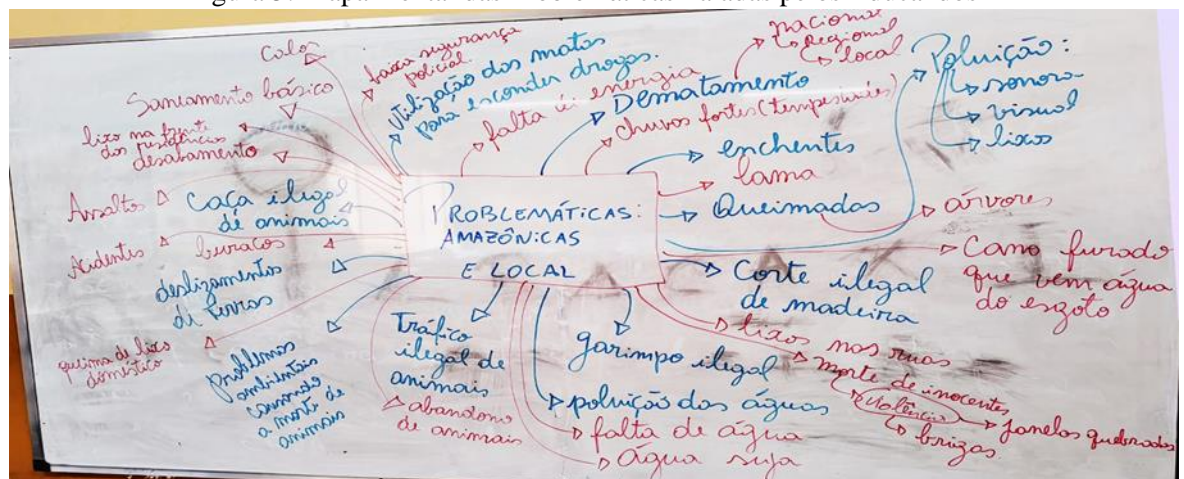 Calor
Saneamento básico
lixo na frente
das residências
desabamento
Assaltos
Acidentes
Caça ilegal
de animais
buracos
deslizamentos
de terras
queima de lixo
doméstico
Problemas
ambientais
causando
a morte de
animais
faixa segurança
policial.
Utilização das matas
para esconder drogas.
falta de energia
Dematamento
nacional
regional
local
chuvas fortes (tempestades)
enchentes
lama
Queimadas
árvores
Poluição:
sonora
visual
lixos
PROBLEMÁTICAS:
AMAZÔNICAS
E LOCAL
Cano furado
que vem água
do esgoto
Corte ilegal
de madeira
lixos nas ruas
morte de inocentes
violência
brigas
janelas quebradas
garimpo ilegal
Tráfico
ilegal de
animais
abandono
de animais
poluição das águas
falta de água
água suja